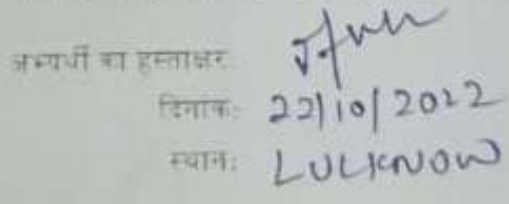 अभ्यर्थी का हस्ताक्षर:
दिनांक: 22/10/2022
स्थान: LUCKNOW